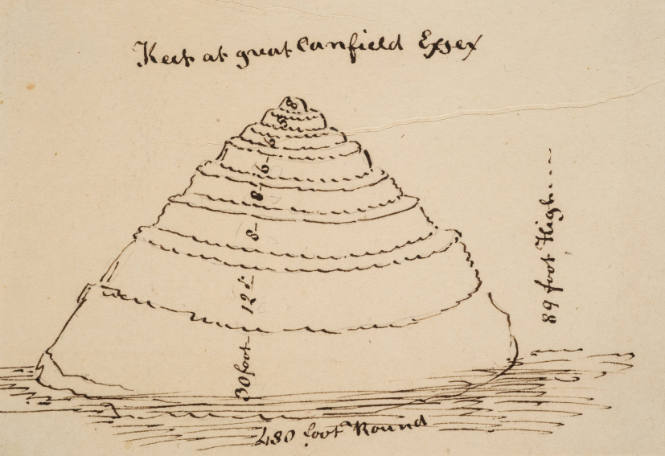 Keep at great Canfield Essex
8
6
6
8
8
12 f
30 foot
89 foot High
480 foot Round